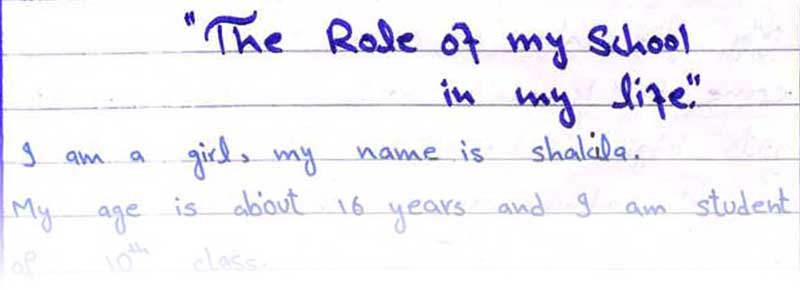 "The Role of my School
in my life."
I am a girl, my name is shakila.
My age is about 16 years and I am student
of 10th class.